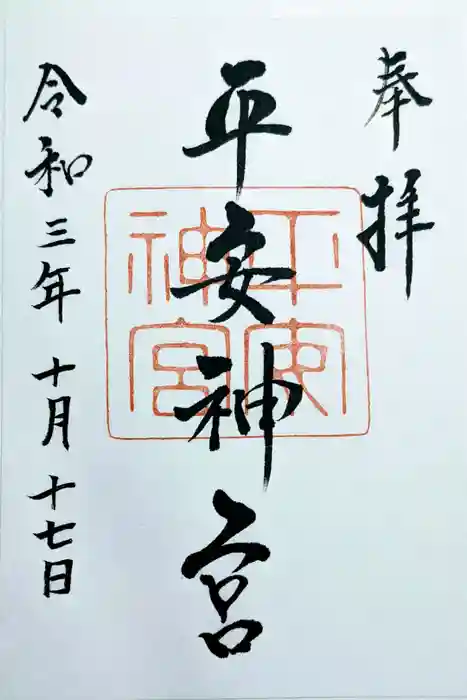 奉拝
平安神宮
平安神宮
令和三年十月十七日